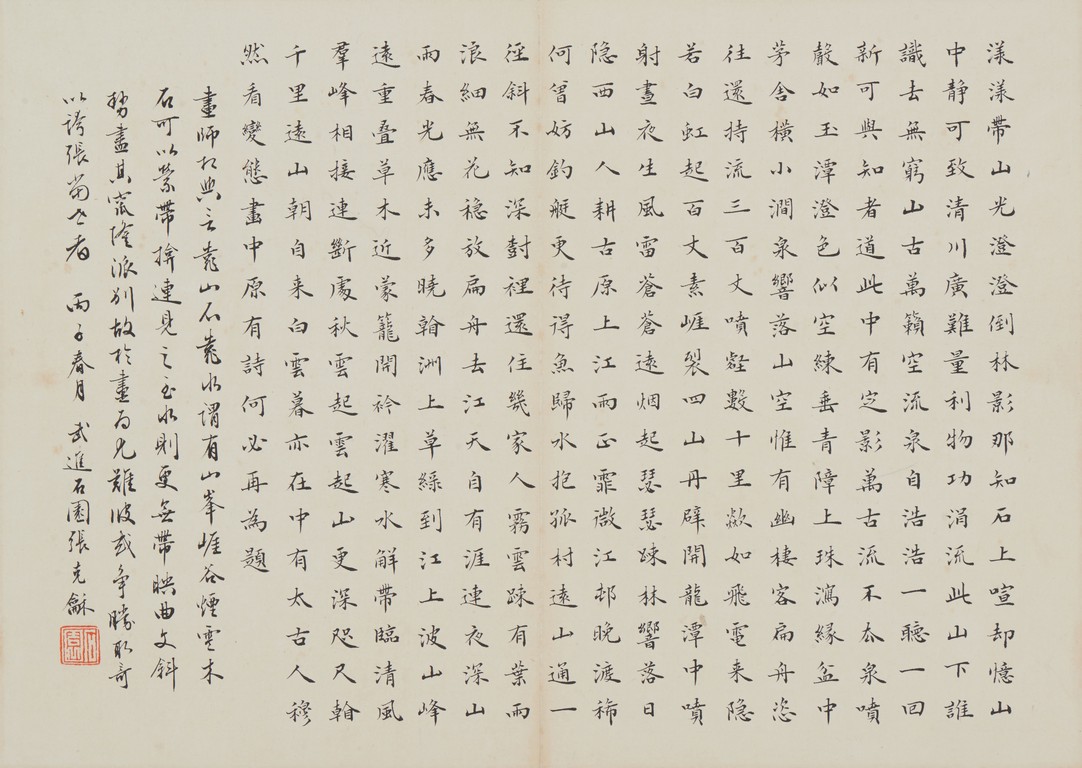 漾漾帶山光澄澄倒林影那知石上喧却憶山
中靜可致清川廣難量利物功涓流此山下誰
識去無窮山古萬籟空流泉自浩浩一聽一回
新可與知者道此中有定影萬古流不夲泉噴
聲如玉潭澄色似空練垂青障上珠瀉緣盆中
茅舍橫小澗泉響落山空惟有幽棲客扁舟恣
往還持流三百丈噴壑數十里歘如飛電来隐
若白虹起百丈素崕裂四山丹壁開龍潭中噴
射晝夜生風雷蒼蒼遠烟起瑟瑟踈林響落日
隐西山人耕古原上江雨正霏微江邨晚渡稀
何曾妨釣艇更待得魚歸水抱孤村遠山通一
徑斜不知深樹裡還住幾家人霧雲踈有葉雨
浪細無花穩放扁舟去江天自有涯連夜深山
雨春光應未多曉翰洲上草綠到江上波山峰
遠重叠草木近蒙籠開衿濯寒水解帶臨清風
羣峰相接連斷處秋雲起雲起山更深咫尺翰
千里遠山朝自来白雲暮亦在中有太古人穆
然看變態畫中原有詩何必再為題
畫師相與言靠山石靠水謂有山峯崕谷煙雲木
石可以縈帶揜連見之至水則更無帶映曲文斜
勢盡其窊隆派別故於畫為尤難彼或争勝取奇
以誇張當世者 丙子春月 武進石園張克龢